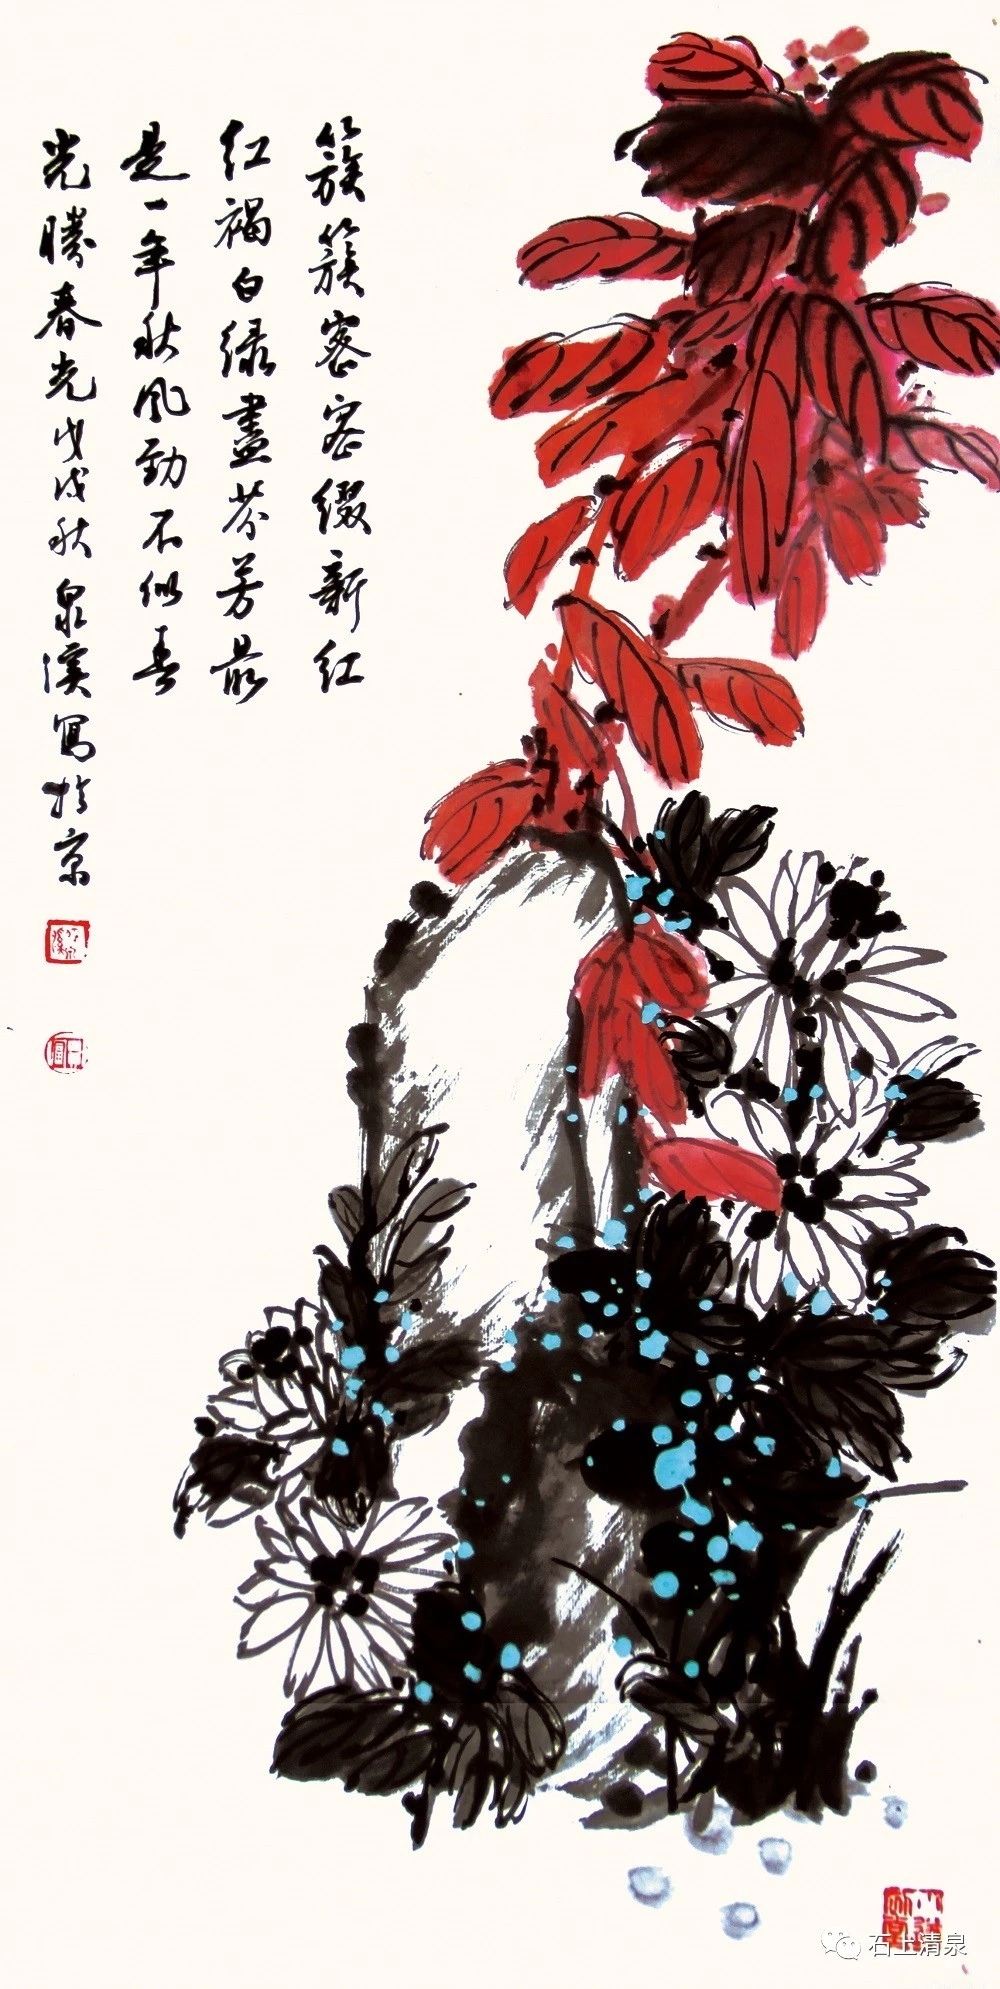 簇簇密密缀新红
红褐白绿盡芬芳最
是一年秋风劲不似春
光勝春光戊戌秋泉溪寫於京
石上清泉